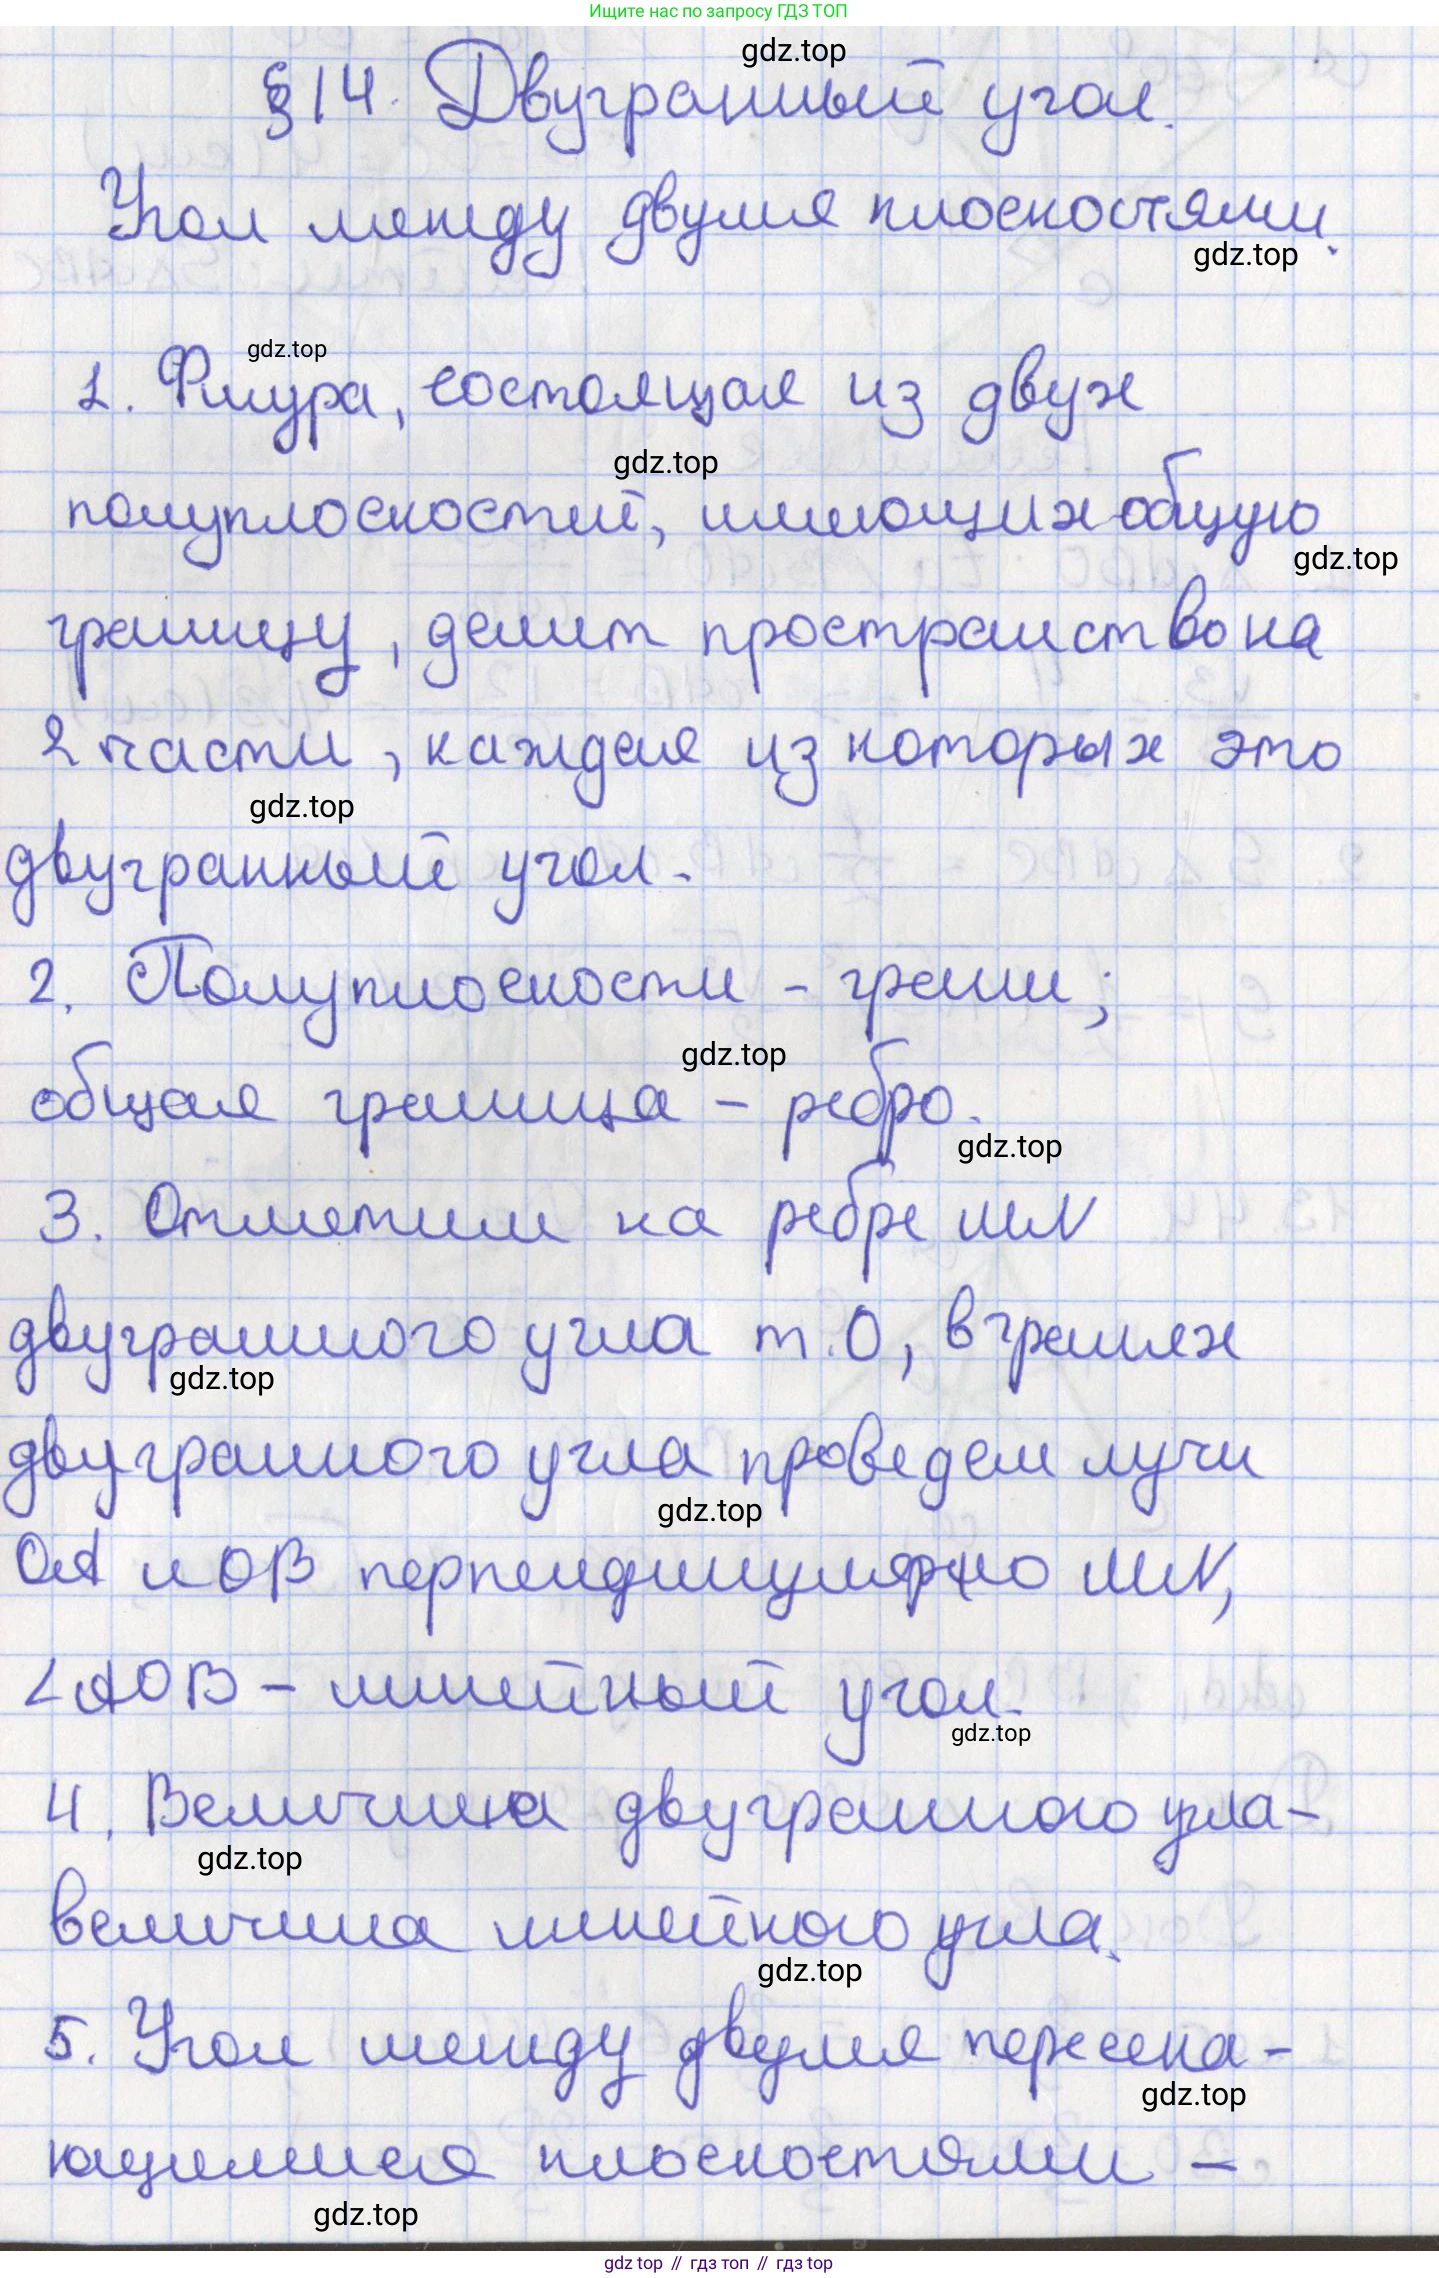 Ищите нас по запросу ГДЗ ТОП
gdz.top
§14. Двугранный угол.
Угол между двумя плоскостями.
gdz.top
gdz.top
1. Фигура, состоящая из двух
gdz.top
полуплоскостей, имеющих общую
gdz.top
границу, делит пространство на
2 части, каждая из которых это
gdz.top
двугранный угол.
2. Полуплоскости - грани;
gdz.top
общая граница - ребро.
gdz.top
3. Отметим на ребре MN
двугранного угла т. O, в гранях
gdz.top
двугранного угла проведем лучи
gdz.top
OA и OB перпендикулярно MN,
∠AOB - линейный угол.
gdz.top
4. Величина двугранного угла -
gdz.top
величина линейного угла.
gdz.top
5. Угол между двумя пересека-
gdz.top
ющимися плоскостями -
gdz.top
gdz top // гдз топ // gdz top